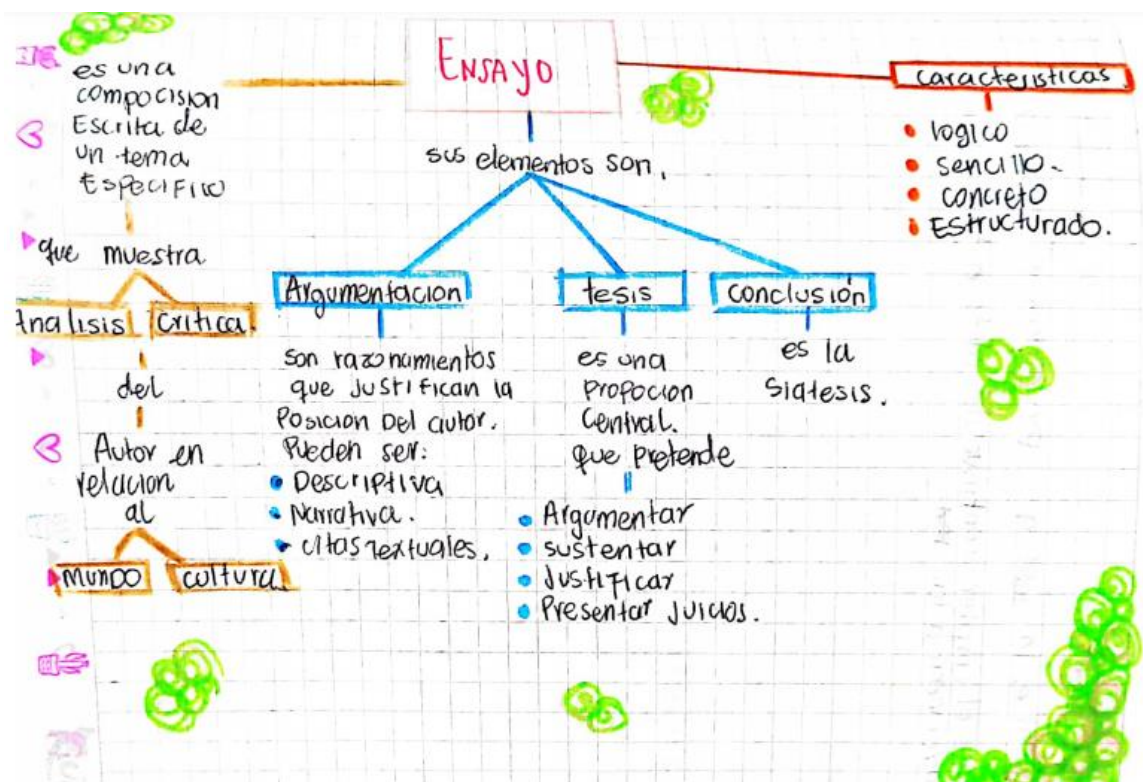 ENSAYO
es una
compocision
Escrita de
un tema
ESPECIFICO
que muestra
Analisis
critica
del
Autor en
relacion
al
MUNDO
cultura
sus elementos son,
Argumentacion
son razonamientos
que JUSTIFICAN la
POSICION DEl autor.
Pueden ser:
• Descriptiva
• Narrativa.
• citas Textuales.
tesis
es una
propocion
Central.
que pretende
• Argumentar
• sustentar
• Justificar
• Presentar Juicios.
conclusión
es la
Siatesis.
caracteristicas.
• logico
• sencillo.
• concreto
• Estructurado.